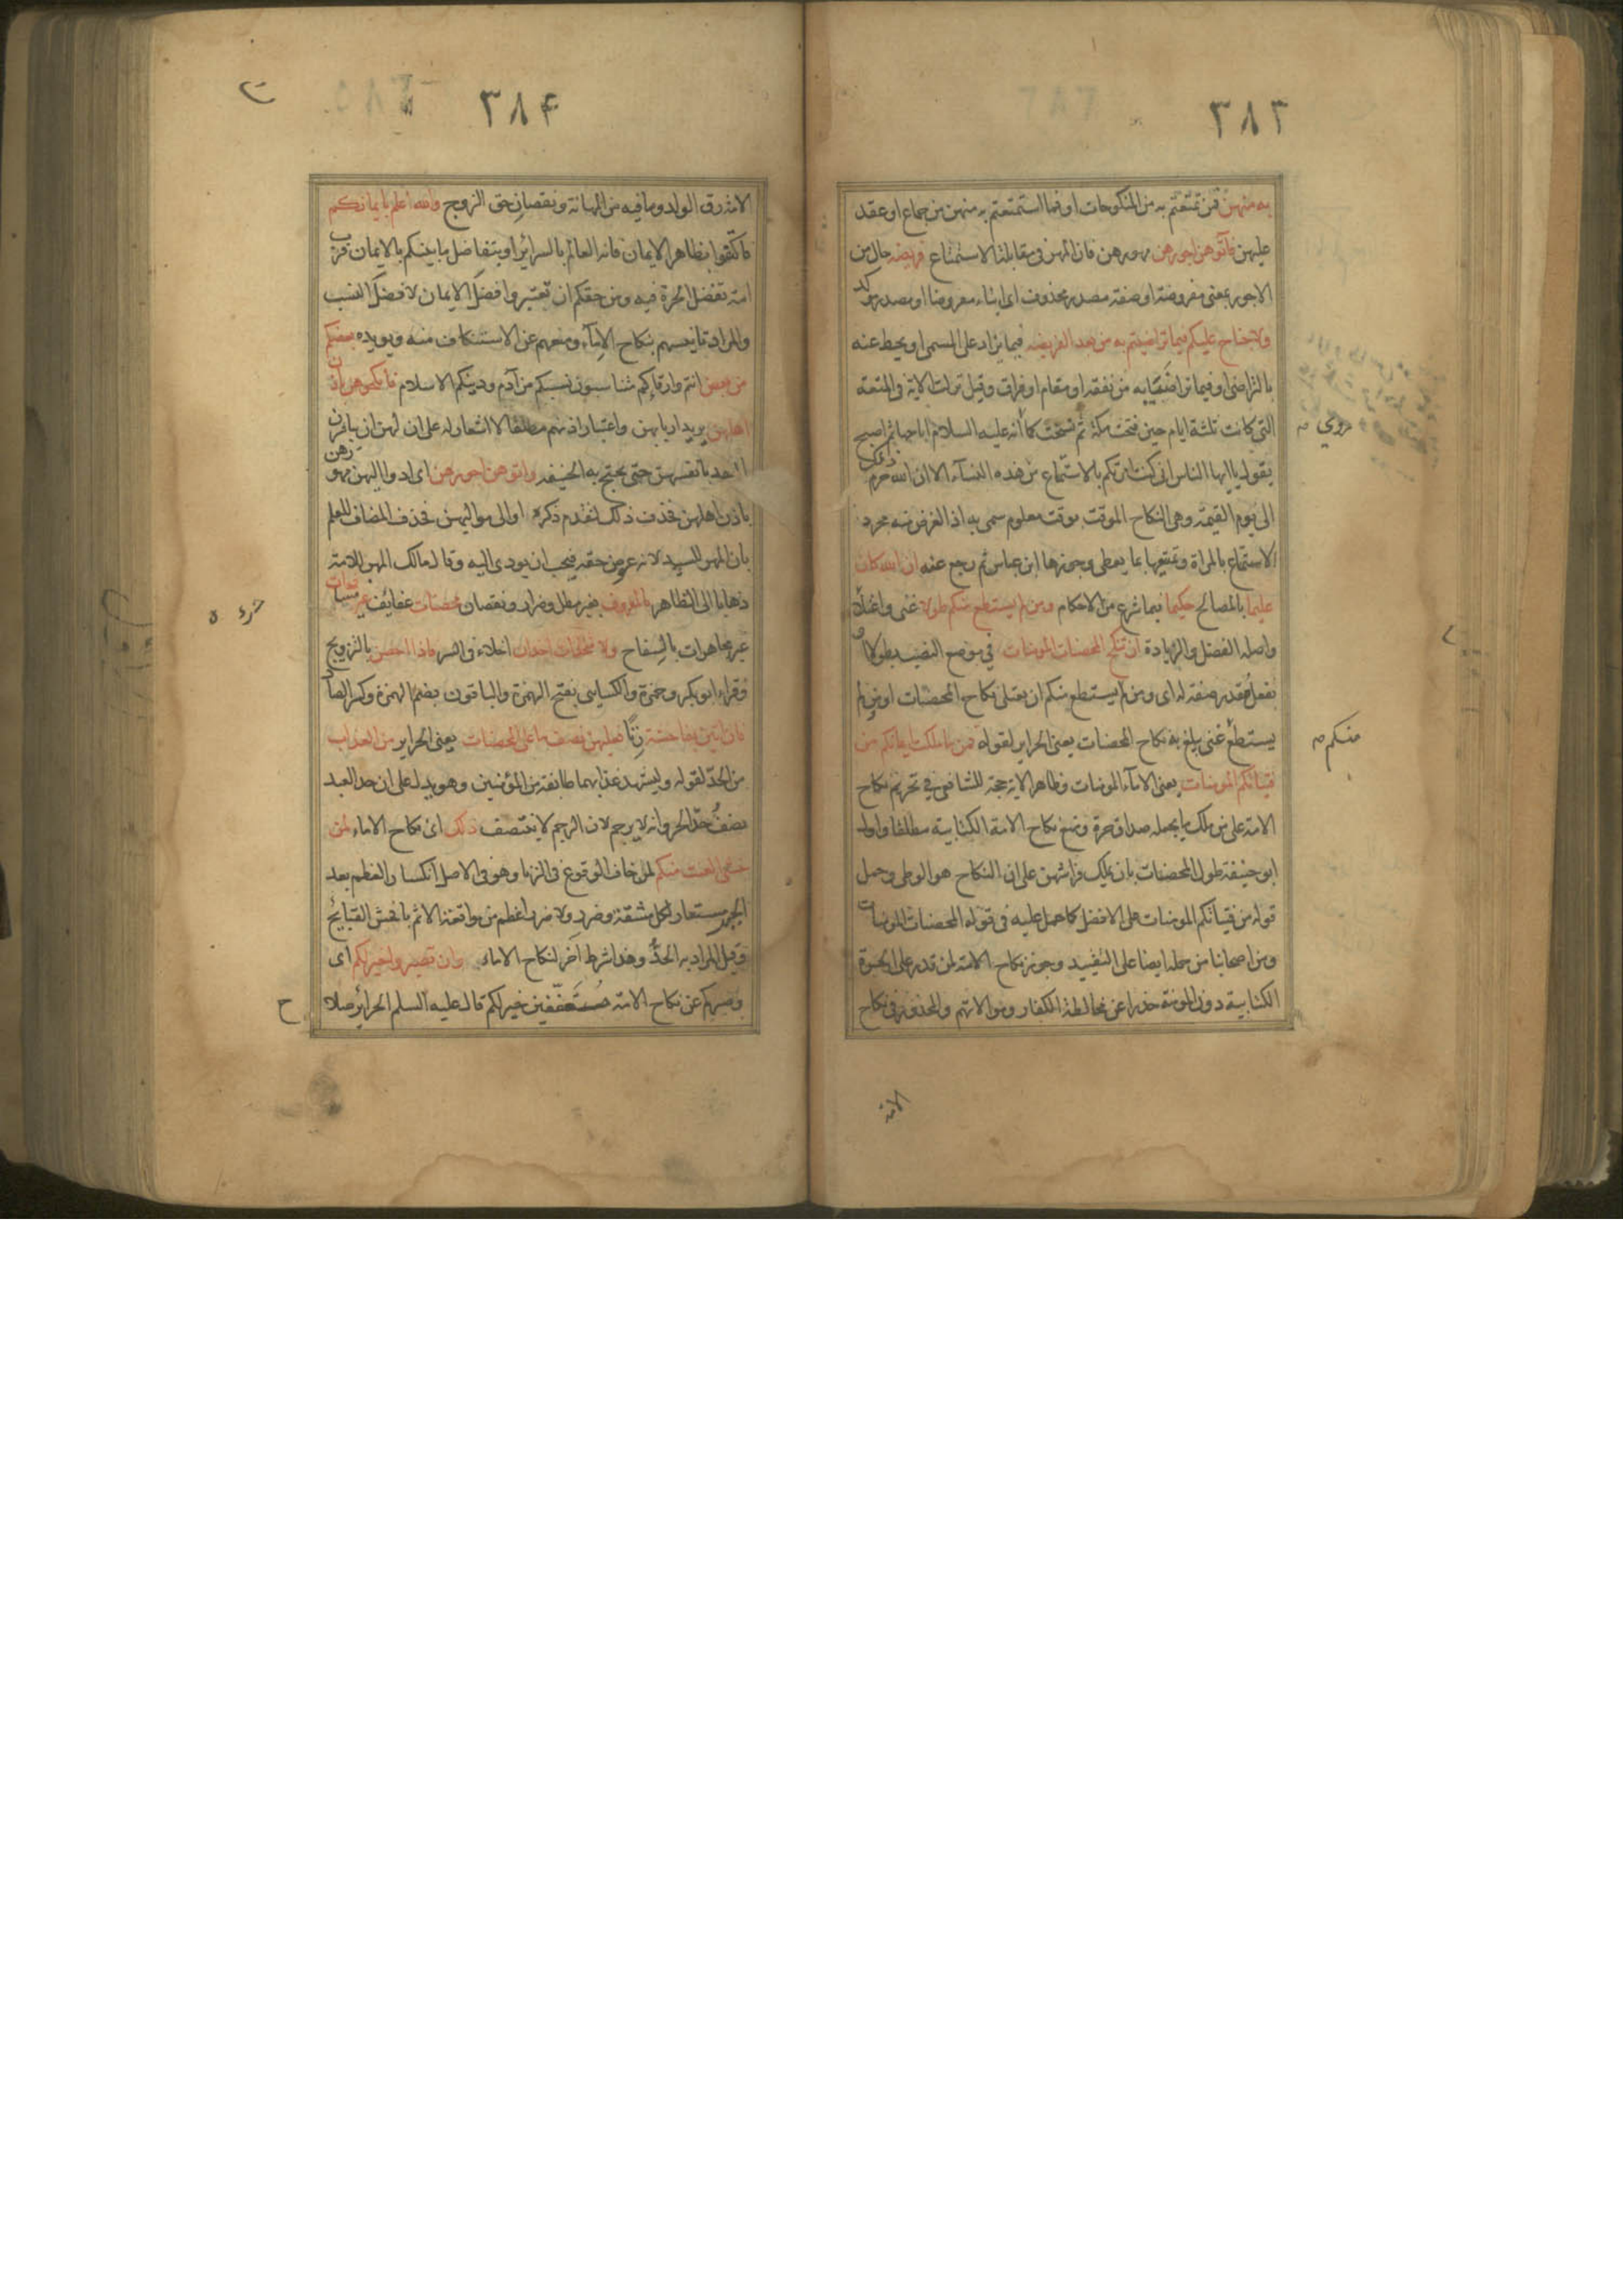 ٣٨٣
به منهن فمن تمتعتم به من المنكوحات او فما استمتعتم به منهن من جماع او عقد
عليهن فآتوهن اجورهن مهورهن فان المهر في مقابلة الاستمتاع فريضة حال من
الاجور بمعنى مفروضة او صفة مصدر محذوف اى ايتاء مفروضا او مصدر موكد
ولا جناح عليكم فيما تراضيتم به من بعد الفريضه فيما يزاد على المسمى او يحط عنه
بالتراضى او فيما تراضيا به من نفقه او مقام او فراق وقيل نزلت الاية في المتعة
التي كانت ثلثة ايام حين فتحت مكة ثم نسخت كما أنه عليه السلام اباحها ثم اصبح
يقول يا ايها الناس انى كنت امرتكم بالاستمتاع من هذه النسآء الا ان الله حرم ذلك
الى يوم القيمة وهى النكاح الموقت بوقت معلوم سمى به اذ الغرض منه مجرد
الاستمتاع بالمراة وتمتيعها بما يعطى وجوزها ابن عباس ثم رجع عنه ان الله كان
عليما بالمصالح حكيما فيما شرع من الاحكام ومن لم يستطع منكم طولا غنى واعتلآ
واصله الفضل والزيادة ان ينكح المحصنات المومنات في موضع النصب بطولا او
بفعل مقدر صفة له اى ومن لم يستطع منكم ان يعتلى نكاح المحصنات او من لم
يستطع غنى يبلغ به نكاح المحصنات يعنى الحراير لقوله فمن ما ملكت ايمانكم من
فتياتكم المومنات يعنى الامآء المومنات وظاهر الاية حجة للشافعى في تحريم نكاح
الامة على من ملك ما يجعله صداق حرة ومنع نكاح الامة الكتابية مطلقا واول
ابو حنيفة طول المحصنات بان يملك فراشهن على ان النكاح هو الوطى وحمل
قوله من فتياتكم المومنات على الافضل كما حمل عليه في قوله المحصنات المومنات
ومن اصحابنا من حمله ايضا على التقييد وجوز نكاح الامة لمن قدر على الحرة
الكتابية دون المومنة حذرا عن مخالطة الكفار وموالاتهم والمحذور في نكاح
روي
منكم
الامة
٣٨۴
الامة رق الولد وما فيه من المهانة ونقصان حق الزوج والله اعلم بايمانكم
فاكتفوا بظاهر الايمان فانه العالم بالسرائر او بتفاضل ما بينكم بالايمان فرب
امة تفضل الحرة فيه ومن حقكم ان تعتبروا فضل الايمان لا فضل النسب
والمراد تانيسهم بنكاح الامآء ومنعهم عن الاستنكاف منه ويويده بعضكم
من بعض انتم وارقاؤكم متناسبون نسبكم من آدم ودينكم الاسلام فانكحوهن باذن
اهلهن يريد اربابهن واعتبار اذنهم مطلقا لا اشعار له على ان لهن ان يباشرن
العقد بانفسهن حتى يحتج به الحنيفه واتوهن اجورهن اى ادوا اليهن مهورهن
باذن اهلهن فحذف ذلك لتقدم ذكره او الى مواليهن فحذف المضاف للعلم
بان المهر للسيد لانه عوض حقه فيجب ان يودى اليه وقال مالك المهر للامة
ذهابا الى الظاهر بالمعروف بغير مطل وضرار ونقصان محصنات عفائف غير مسافحات
غير مجاهرات بالسفاح ولا متخذات اخدان اخلاء في السر فاذا احصن بالتزويج
وقراء ابو بكر وحمزة والكسايى بفتح الهمزة والباقون بضم الهمزة وكسر الصاد
فان اتين بفاحشة زنًا فعليهن نصف ما على المحصنات يعنى الحراير من العذاب
من الحدّ لقوله وليشهد عذابهما طايفة من المؤمنين وهو يدل على ان حد العبد
نصف حدّ الحر وانه لا يرجم لان الرجم لا يتنصف ذلك اى نكاح الاماء لمن
خشى العنت منكم لمن خاف الوقوع فى الزنا وهو فى الاصل انكسار العظم بعد
الجبر مستعار لكل مشقة وضرر ولا ضرر اعظم من مواقعة الاثم بافحش القبايح
وقيل المراد به الحدُّ وهذا شرط آخر لنكاح الاماء وان تصبروا خير لكم اى
وصبركم عن نكاح الامة متعففين خير لكم قال عليه السلم الحرائر صلاح